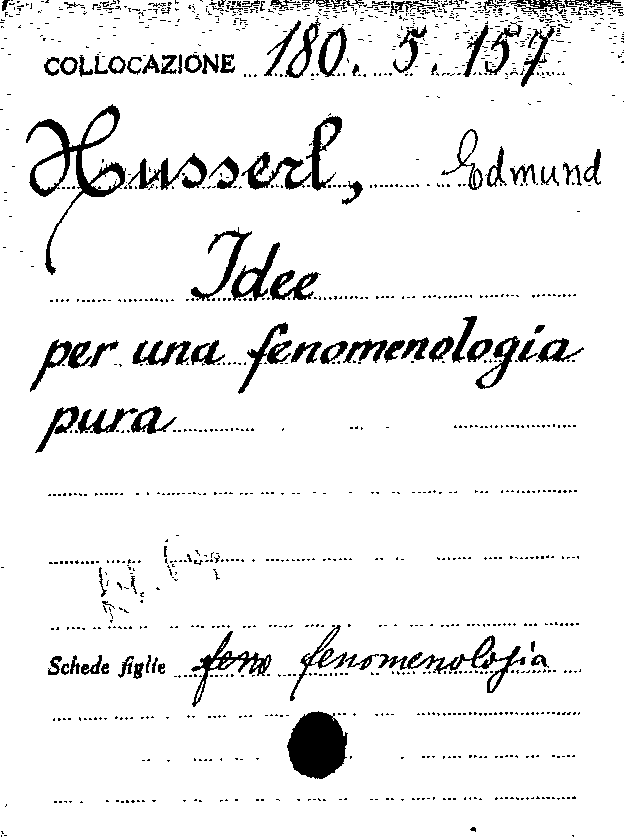 COLLOCAZIONE 180. 5. 157
Husserl, Edmund
Idee
per una fenomenologia
pura
Schede figlie feno fenomenologia